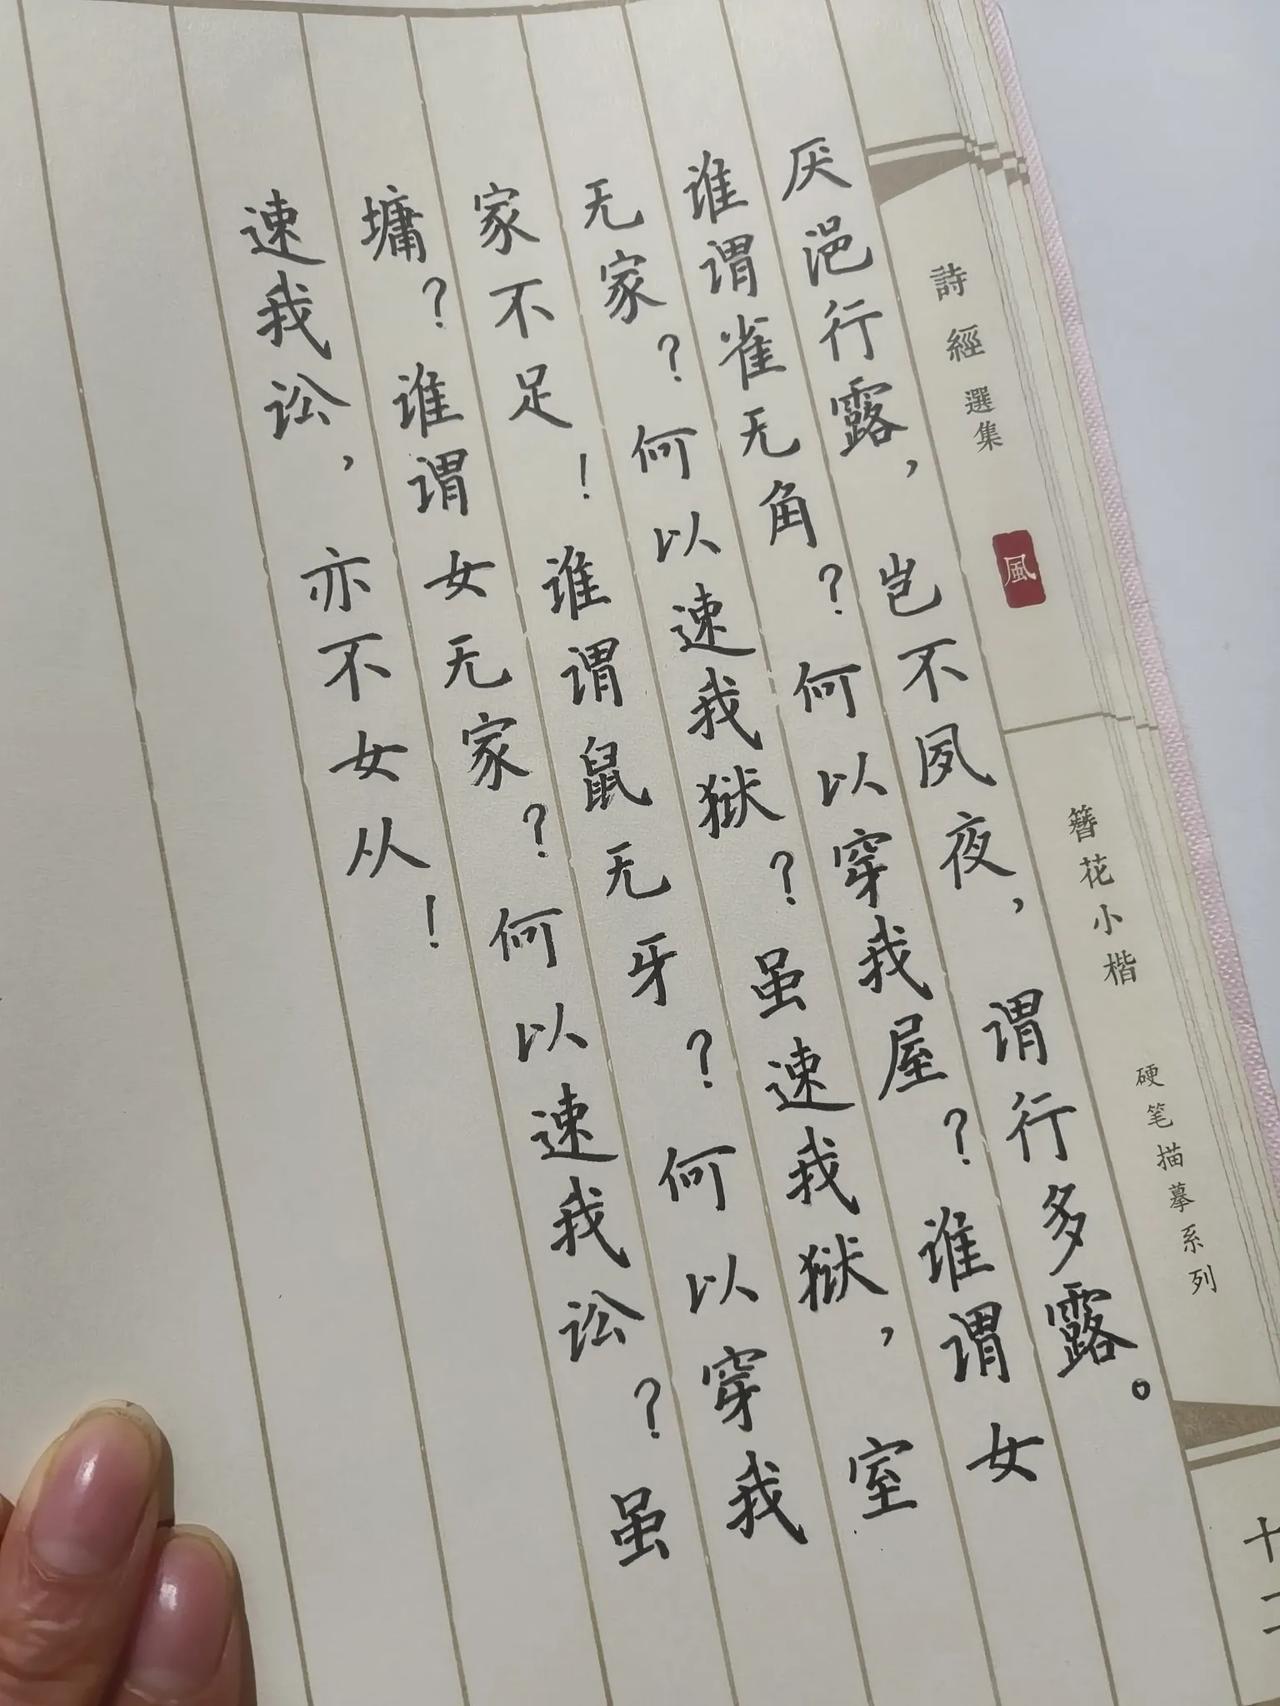 詩經選集
風
簪花小楷
硬笔描摹系列
十二
厌浥行露，岂不夙夜，谓行多露。
谁谓雀无角？何以穿我屋？谁谓女
无家？何以速我狱？虽速我狱，室
家不足！谁谓鼠无牙？何以穿我
墉？谁谓女无家？何以速我讼？虽
速我讼，亦不女从！